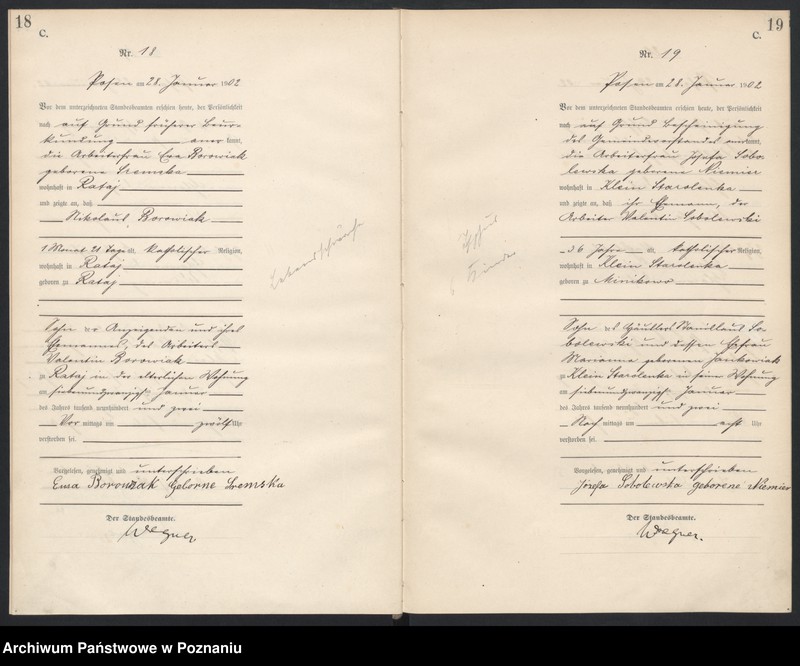 18
C.
Nr. 18
Posen am 28. Januar 1902
Vor dem unterzeichneten Standesbeamten erschien heute, der Persönlichkeit
nach auf Grund früherer Beur-
kundung anerkannt,
die Arbeiterfrau Ewa Borowiak
geborene Sremska
wohnhaft in Rataj
und zeigte an, daß
Nikolaus Borowiak
1 Monat 21 Tage alt, katholischer Religion,
wohnhaft in Rataj
geboren zu Rataj
Sohn der Anzeigenden und ihres
Ehemannes, des Arbeiters
Valentin Borowiak
zu Rataj in der elterlichen Wohnung
am siebenundzwanzigsten Januar
des Jahres tausend neunhundert und zwei
Vor mittags um zwölf Uhr
verstorben sei.
Vorgelesen, genehmigt und unterschrieben
Ewa Borowiak geborne Sremska
Der Standesbeamte.
Wegner
Lebensschwäche
19
C.
Nr. 19
Posen am 28. Januar 1902
Vor dem unterzeichneten Standesbeamten erschien heute, der Persönlichkeit
nach auf Grund Bescheinigung
des Gemeindevorstandes anerkannt,
die Arbeiterfrau Josefa Sobo-
lewska geborene Niemier
wohnhaft in Klein Starolenka
und zeigte an, daß ihr Ehemann, der
Arbeiter Valentin Sobolewski
36 Jahre alt, katholischer Religion,
wohnhaft in Klein Starolenka
geboren zu Minikowo
Sohn des Häuslers Stanislaus So-
bolewski und dessen Ehefrau
Marianna geborenen Jankowiak
zu Klein Starolenka in seiner Wohnung
am siebenundzwanzigsten Januar
des Jahres tausend neunhundert und zwei
Nach mittags um acht Uhr
verstorben sei.
Vorgelesen, genehmigt und unterschrieben
Józefa Sobolewska geborene Niemier
Der Standesbeamte.
Wegner.
Kinder
Archiwum Państwowe w Poznaniu